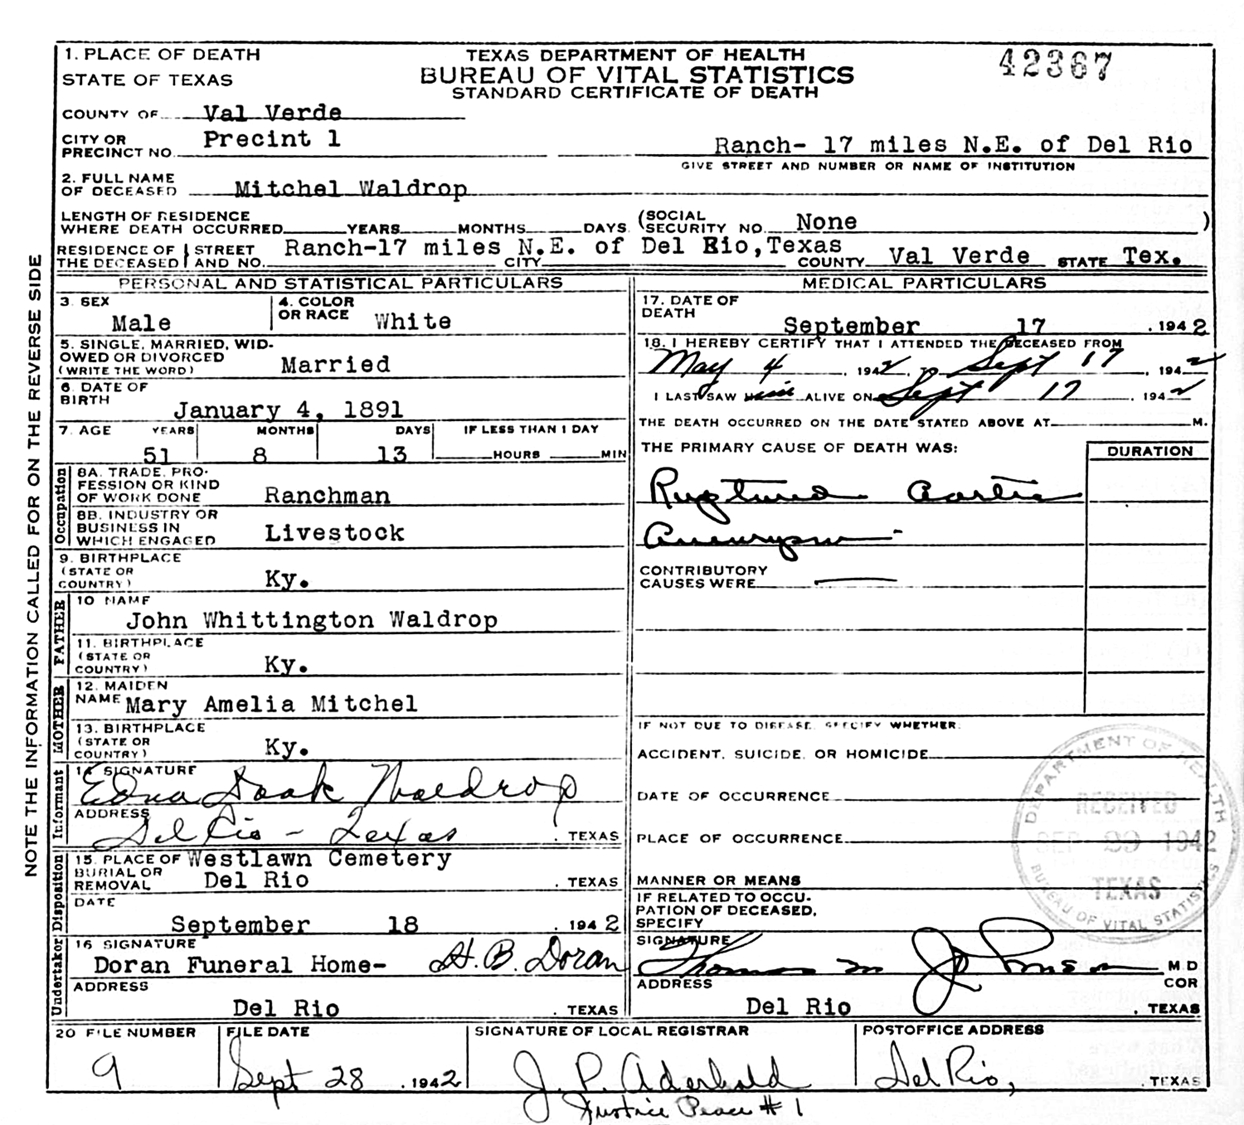 TEXAS DEPARTMENT OF HEALTH
BUREAU OF VITAL STATISTICS
STANDARD CERTIFICATE OF DEATH
42367
NOTE THE INFORMATION CALLED FOR ON THE REVERSE SIDE
1. PLACE OF DEATH
STATE OF TEXAS
COUNTY OF Val Verde
CITY OR PRECINCT NO. Precint 1
Ranch- 17 miles N.E. of Del Rio
GIVE STREET AND NUMBER OR NAME OF INSTITUTION
2. FULL NAME OF DECEASED Mitchel Waldrop
LENGTH OF RESIDENCE WHERE DEATH OCCURRED YEARS MONTHS DAYS (SOCIAL SECURITY NO. None )
RESIDENCE OF THE DECEASED STREET AND NO. Ranch-17 miles N.E. of Del Rio, Texas CITY COUNTY Val Verde STATE Tex.
PERSONAL AND STATISTICAL PARTICULARS
3. SEX Male
4. COLOR OR RACE White
5. SINGLE, MARRIED, WIDOWED OR DIVORCED (WRITE THE WORD) Married
6. DATE OF BIRTH January 4, 1891
7. AGE YEARS MONTHS DAYS IF LESS THAN 1 DAY
51 8 13 HOURS MIN
Occupation
8A. TRADE, PROFESSION OR KIND OF WORK DONE Ranchman
8B. INDUSTRY OR BUSINESS IN WHICH ENGAGED Livestock
9. BIRTHPLACE (STATE OR COUNTRY) Ky.
FATHER
10 NAME John Whittington Waldrop
11. BIRTHPLACE (STATE OR COUNTRY) Ky.
MOTHER
12. MAIDEN NAME Mary Amelia Mitchel
13. BIRTHPLACE (STATE OR COUNTRY) Ky.
Informant
14 SIGNATURE Edna Doak Waldrop
ADDRESS Del Rio - Texas . TEXAS
Disposition
15. PLACE OF BURIAL OR REMOVAL Westlawn Cemetery
Del Rio . TEXAS
DATE September 18 . 1942
Undertaker
16 SIGNATURE Doran Funeral Home- H. B. Doran
ADDRESS Del Rio . TEXAS
MEDICAL PARTICULARS
17. DATE OF DEATH September 17 . 1942
18. I HEREBY CERTIFY THAT I ATTENDED THE DECEASED FROM
May 4 , 1942, to Sept 17 , 1942
I LAST SAW him ALIVE ON Sept 17 , 1942
THE DEATH OCCURRED ON THE DATE STATED ABOVE AT M.
THE PRIMARY CAUSE OF DEATH WAS: DURATION
Ruptured aortic
Aneurysm -
CONTRIBUTORY CAUSES WERE
IF NOT DUE TO DISEASE, SPECIFY WHETHER:
ACCIDENT, SUICIDE, OR HOMICIDE
DATE OF OCCURRENCE
PLACE OF OCCURRENCE
MANNER OR MEANS
IF RELATED TO OCCUPATION OF DECEASED, SPECIFY
SIGNATURE Thomas M Johnson M D
COR
ADDRESS Del Rio . TEXAS
DEPARTMENT OF HEALTH
RECEIVED
SEP 29 1942
TEXAS
BUREAU OF VITAL STATISTICS
20 FILE NUMBER 9
FILE DATE Sept 28 . 1942
SIGNATURE OF LOCAL REGISTRAR
J. P. Aderhold
Justice Peace # 1
POSTOFFICE ADDRESS
Del Rio, . TEXAS